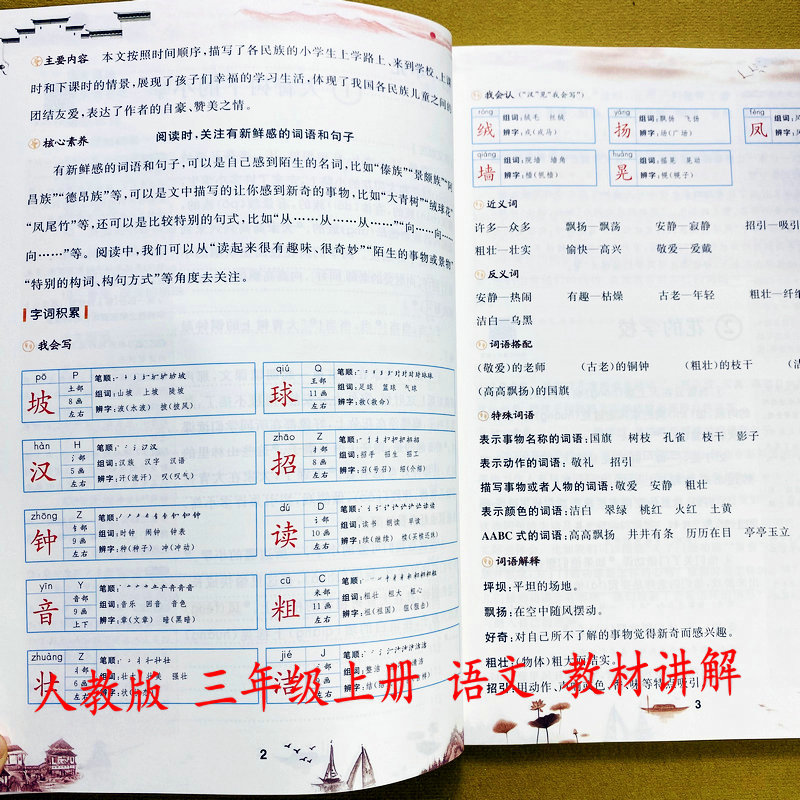 主要内容 本文按照时间顺序，描写了各民族的小学生上学路上、来到学校、上课
时和下课时的情景，展现了孩子们幸福的学习生活，体现了我国各民族儿童之间的
团结友爱，表达了作者的自豪、赞美之情。
核心素养 阅读时，关注有新鲜感的词语和句子
有新鲜感的词语和句子，可以是自己感到陌生的名词，比如“傣族”“景颇族”“阿
昌族”“德昂族”等，可以是文中描写的让你感到新奇的事物，比如“大青树”“绒球花”
“凤尾竹”等，还可以是比较特别的句式，比如“从……从……从……”“向……向……
向……”等。阅读中，我们可以从“读起来很有趣味、很奇妙”“陌生的事物或景物”
“特别的构词、构句方式”等角度去关注。
字词积累
我会写
pō P 笔顺：
坡 土部 8画 左右
组词：山坡 上坡 陡坡
辨字：波（水波） 披（披风）
qiú Q 笔顺：
球 王部 11画 左右
组词：足球 篮球 气球
辨字：救（救命）
hàn H 笔顺：
汉 氵部 5画 左右
组词：汉族 汉字 汉语
辨字：汗（流汗） 叹（叹气）
zhāo Z 笔顺：
招 扌部 8画 左右
组词：招手 招生 招工
辨字：召（号召） 绍（介绍）
zhōng Z 笔顺：
钟 钅部 9画 左右
组词：时钟 闹钟 钟表
辨字：种（种子） 冲（冲动）
dú D 笔顺：
读 讠部 10画 左右
组词：读书 朗读 早读
辨字：续（继续） 椟（买椟还珠）
yīn Y 笔顺：
音 音部 9画 上下
组词：音乐 回音 音色
辨字：章（文章） 暗（黑暗）
cū C 笔顺：
粗 米部 11画 左右
组词：粗壮 粗大 粗心
辨字：祖（祖国） 狙（狙击）
zhuàng Z 笔顺：
壮 6画 左右
强壮
辨字：状
jié J 笔顺：
洁 9画
组词：整洁 清洁
辨字：结
2
我会认（“汉”见“我会写”）
róng
绒 组词：绒毛 丝绒
辨字：戎（戎马）
yáng
扬 组词：飘扬 飞扬
辨字：场（广场）
fèng
凤 组词：凤
辨字：风
qiáng
墙 组词：院墙 墙角
辨字：樯（帆樯）
huǎng
晃 组词：摇晃 晃动
辨字：幌（幌子）
近义词
许多—众多 飘扬—飘荡 安静—寂静 招引—吸引
粗壮—壮实 愉快—高兴 敬爱—爱戴
反义词
安静—热闹 有趣—枯燥 古老—年轻 粗壮—纤细
洁白—乌黑
词语搭配
（敬爱）的老师 （古老）的铜钟 （粗壮）的枝干 （洁
（高高飘扬）的国旗
特殊词语
表示事物名称的词语：国旗 树枝 孔雀 枝干 影子
表示动作的词语：敬礼 招引
描写事物或者人物的词语：敬爱 安静 粗壮
表示颜色的词语：洁白 翠绿 桃红 火红 土黄
AABC式的词语：高高飘扬 井井有条 历历在目 亭亭玉立
词语解释
坪坝：平坦的场地。
飘扬：在空中随风摆动。
好奇：对自己所不了解的事物觉得新奇而感兴趣。
粗壮：（物体）粗大而结实。
招引：用动作、声响或色、香、味等特点吸引。
3
人教版 三年级上册 语文 教材讲解